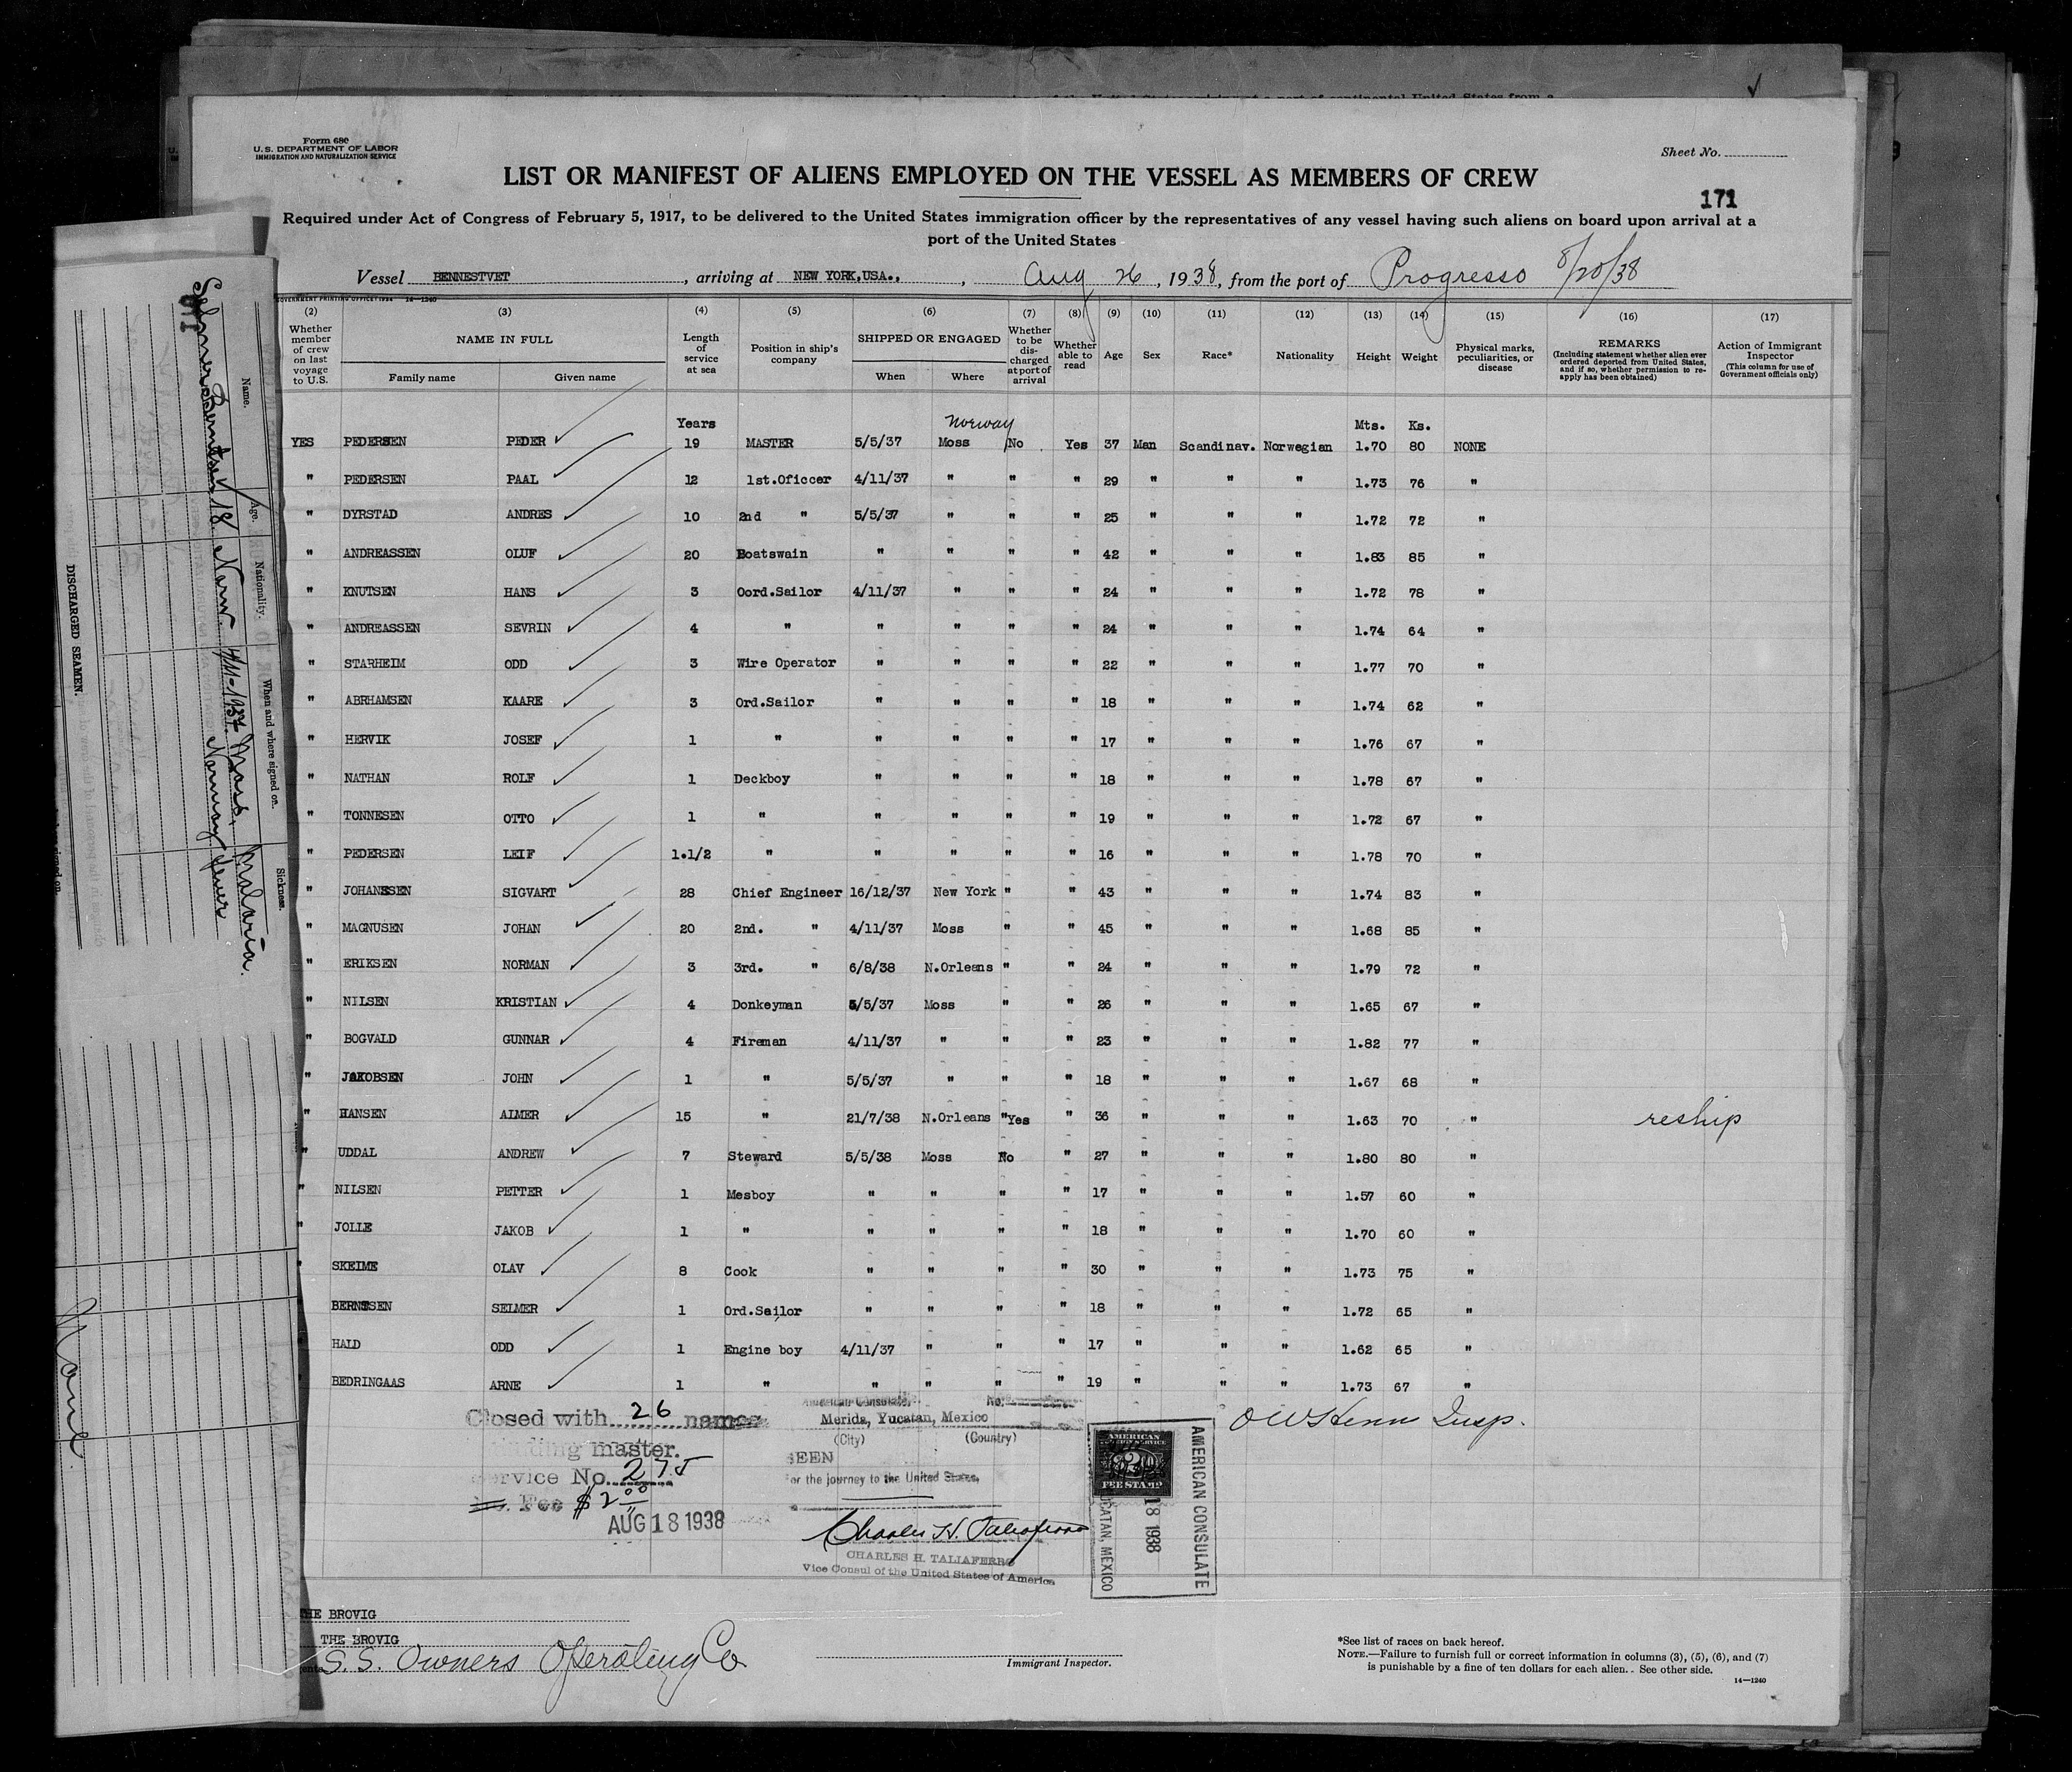 Form 680
U. S. DEPARTMENT OF LABOR
IMMIGRATION AND NATURALIZATION SERVICE
Sheet No.
LIST OR MANIFEST OF ALIENS EMPLOYED ON THE VESSEL AS MEMBERS OF CREW
171
Required under Act of Congress of February 5, 1917, to be delivered to the United States immigration officer by the representatives of any vessel having such aliens on board upon arrival at a
port of the United States
Vessel BENNESTVET, arriving at NEW YORK,USA., , Aug 26, 1938, from the port of Progresso 8/20/38
GOVERNMENT PRINTING OFFICE 14—1240
(2) (3) (4) (5) (6) (7) (8) (9) (10) (11) (12) (13) (14) (15) (16) (17)
Whether member of crew on last voyage to U.S. NAME IN FULL Family name Given name Length of service at sea Position in ship's company SHIPPED OR ENGAGED When Where Whether to be discharged at port of arrival Whether able to read Age Sex Race* Nationality Height Weight Physical marks, peculiarities, or disease REMARKS (Including statement whether alien ever ordered deported from United States, and if so, whether permission to re-apply has been obtained) Action of Immigrant Inspector (This column for use of Government officials only)
Years Norway Mts. Ks.
YES PEDERSEN PEDER 19 MASTER 5/5/37 Moss No Yes 37 Man Scandinav. Norwegian 1.70 80 NONE
" PEDERSEN PAAL 12 1st.Oficcer 4/11/37 " " " 29 " " " 1.73 76 "
" DYRSTAD ANDRES 10 2nd " 5/5/37 " " " 25 " " " 1.72 72 "
" ANDREASSEN OLUF 20 Boatswain " " " " 42 " " " 1.83 85 "
" KNUTSEN HANS 3 Oord.Sailor 4/11/37 " " " 24 " " " 1.72 78 "
" ANDREASSEN SEVRIN 4 " " " " " 24 " " " 1.74 64 "
" STARHEIM ODD 3 Wire Operator " " " " 22 " " " 1.77 70 "
" ABRHAMSEN KAARE 3 Ord.Sailor " " " " 18 " " " 1.74 62 "
" HERVIK JOSEF 1 " " " " " 17 " " " 1.76 67 "
" NATHAN ROLF 1 Deckboy " " " " 18 " " " 1.78 67 "
" TONNESEN OTTO 1 " " " " " 19 " " " 1.72 67 "
" PEDERSEN LEIF 1.1/2 " " " " " 16 " " " 1.78 70 "
" JOHANSSEN SIGVART 28 Chief Engineer 16/12/37 New York " " 43 " " " 1.74 83 "
" MAGNUSEN JOHAN 20 2nd. " 4/11/37 Moss " " 45 " " " 1.68 85 "
" ERIKSEN NORMAN 3 3rd. " 6/8/38 N.Orleans " " 24 " " " 1.79 72 "
" NILSEN KRISTIAN 4 Donkeyman 5/5/37 Moss " " 26 " " " 1.65 67 "
" BOGVALD GUNNAR 4 Fireman 4/11/37 " " " 23 " " " 1.82 77 "
" JAKOBSEN JOHN 1 " 5/5/37 " " " 18 " " " 1.67 68 "
" HANSEN ALMER 15 " 21/7/38 N.Orleans "Yes " 36 " " " 1.63 70 " reship
" UDDAL ANDREW 7 Steward 5/5/38 Moss No " 27 " " " 1.80 80 "
" NILSEN PETTER 1 Mesboy " " " " 17 " " " 1.57 60 "
" JOLLE JAKOB 1 " " " " " 18 " " " 1.70 60 "
" SKEIME OLAV 8 Cook " " " " 30 " " " 1.73 75 "
" BERNTSEN SELMER 1 Ord.Sailor " " " " 18 " " " 1.72 65 "
HALD ODD 1 Engine boy 4/11/37 " " " 17 " " " 1.62 65 "
BEDRINGAAS ARNE 1 " " " " " 19 " " " 1.73 67 "
Closed with 26 names
including master.
Service No. 275
Fee $2 00
AUG 18 1938
American Consulate, No.
Merida, Yucatan, Mexico
(City) (Country)
SEEN
For the journey to the United States.
Charles H. Taliaferro
CHARLES H. TALIAFERRO
Vice Consul of the United States of America
AMERICAN
FEE STAMP
AMERICAN CONSULATE
18 1938
YUCATAN, MEXICO
Insp.
THE BROVIG
THE BROVIG
S.S. Owners Operating Co
Immigrant Inspector.
*See list of races on back hereof.
NOTE.—Failure to furnish full or correct information in columns (3), (5), (6), and (7)
is punishable by a fine of ten dollars for each alien. See other side.
14—1240
Name. Age. Nationality. When and where signed on. Sickness.
Selmer Berntsen 18 Norw. 4/11-1937 Moss, Norway Malaria fever
DISCHARGED SEAMEN.
None